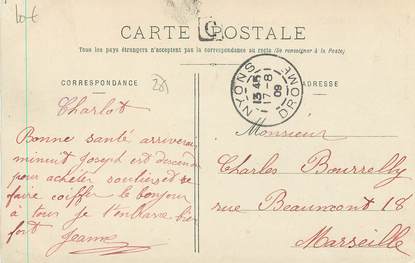 10 €
CARTE POSTALE
Tous les pays étrangers n'acceptent pas la correspondance au recto (Se renseigner à la Poste)
CORRESPONDANCE
ADRESSE
NYONS
13 45
17-8
09
DROME
Charlot
Bonne santé arriverons
minuit Joseph est descendu
pour acheter soutiens et se
faire coiffer le bonjour
à tous je t'embrasse bien
fort Jeanne
Monsieur
Charles Bourrelly
rue Beaumont 18
Marseille